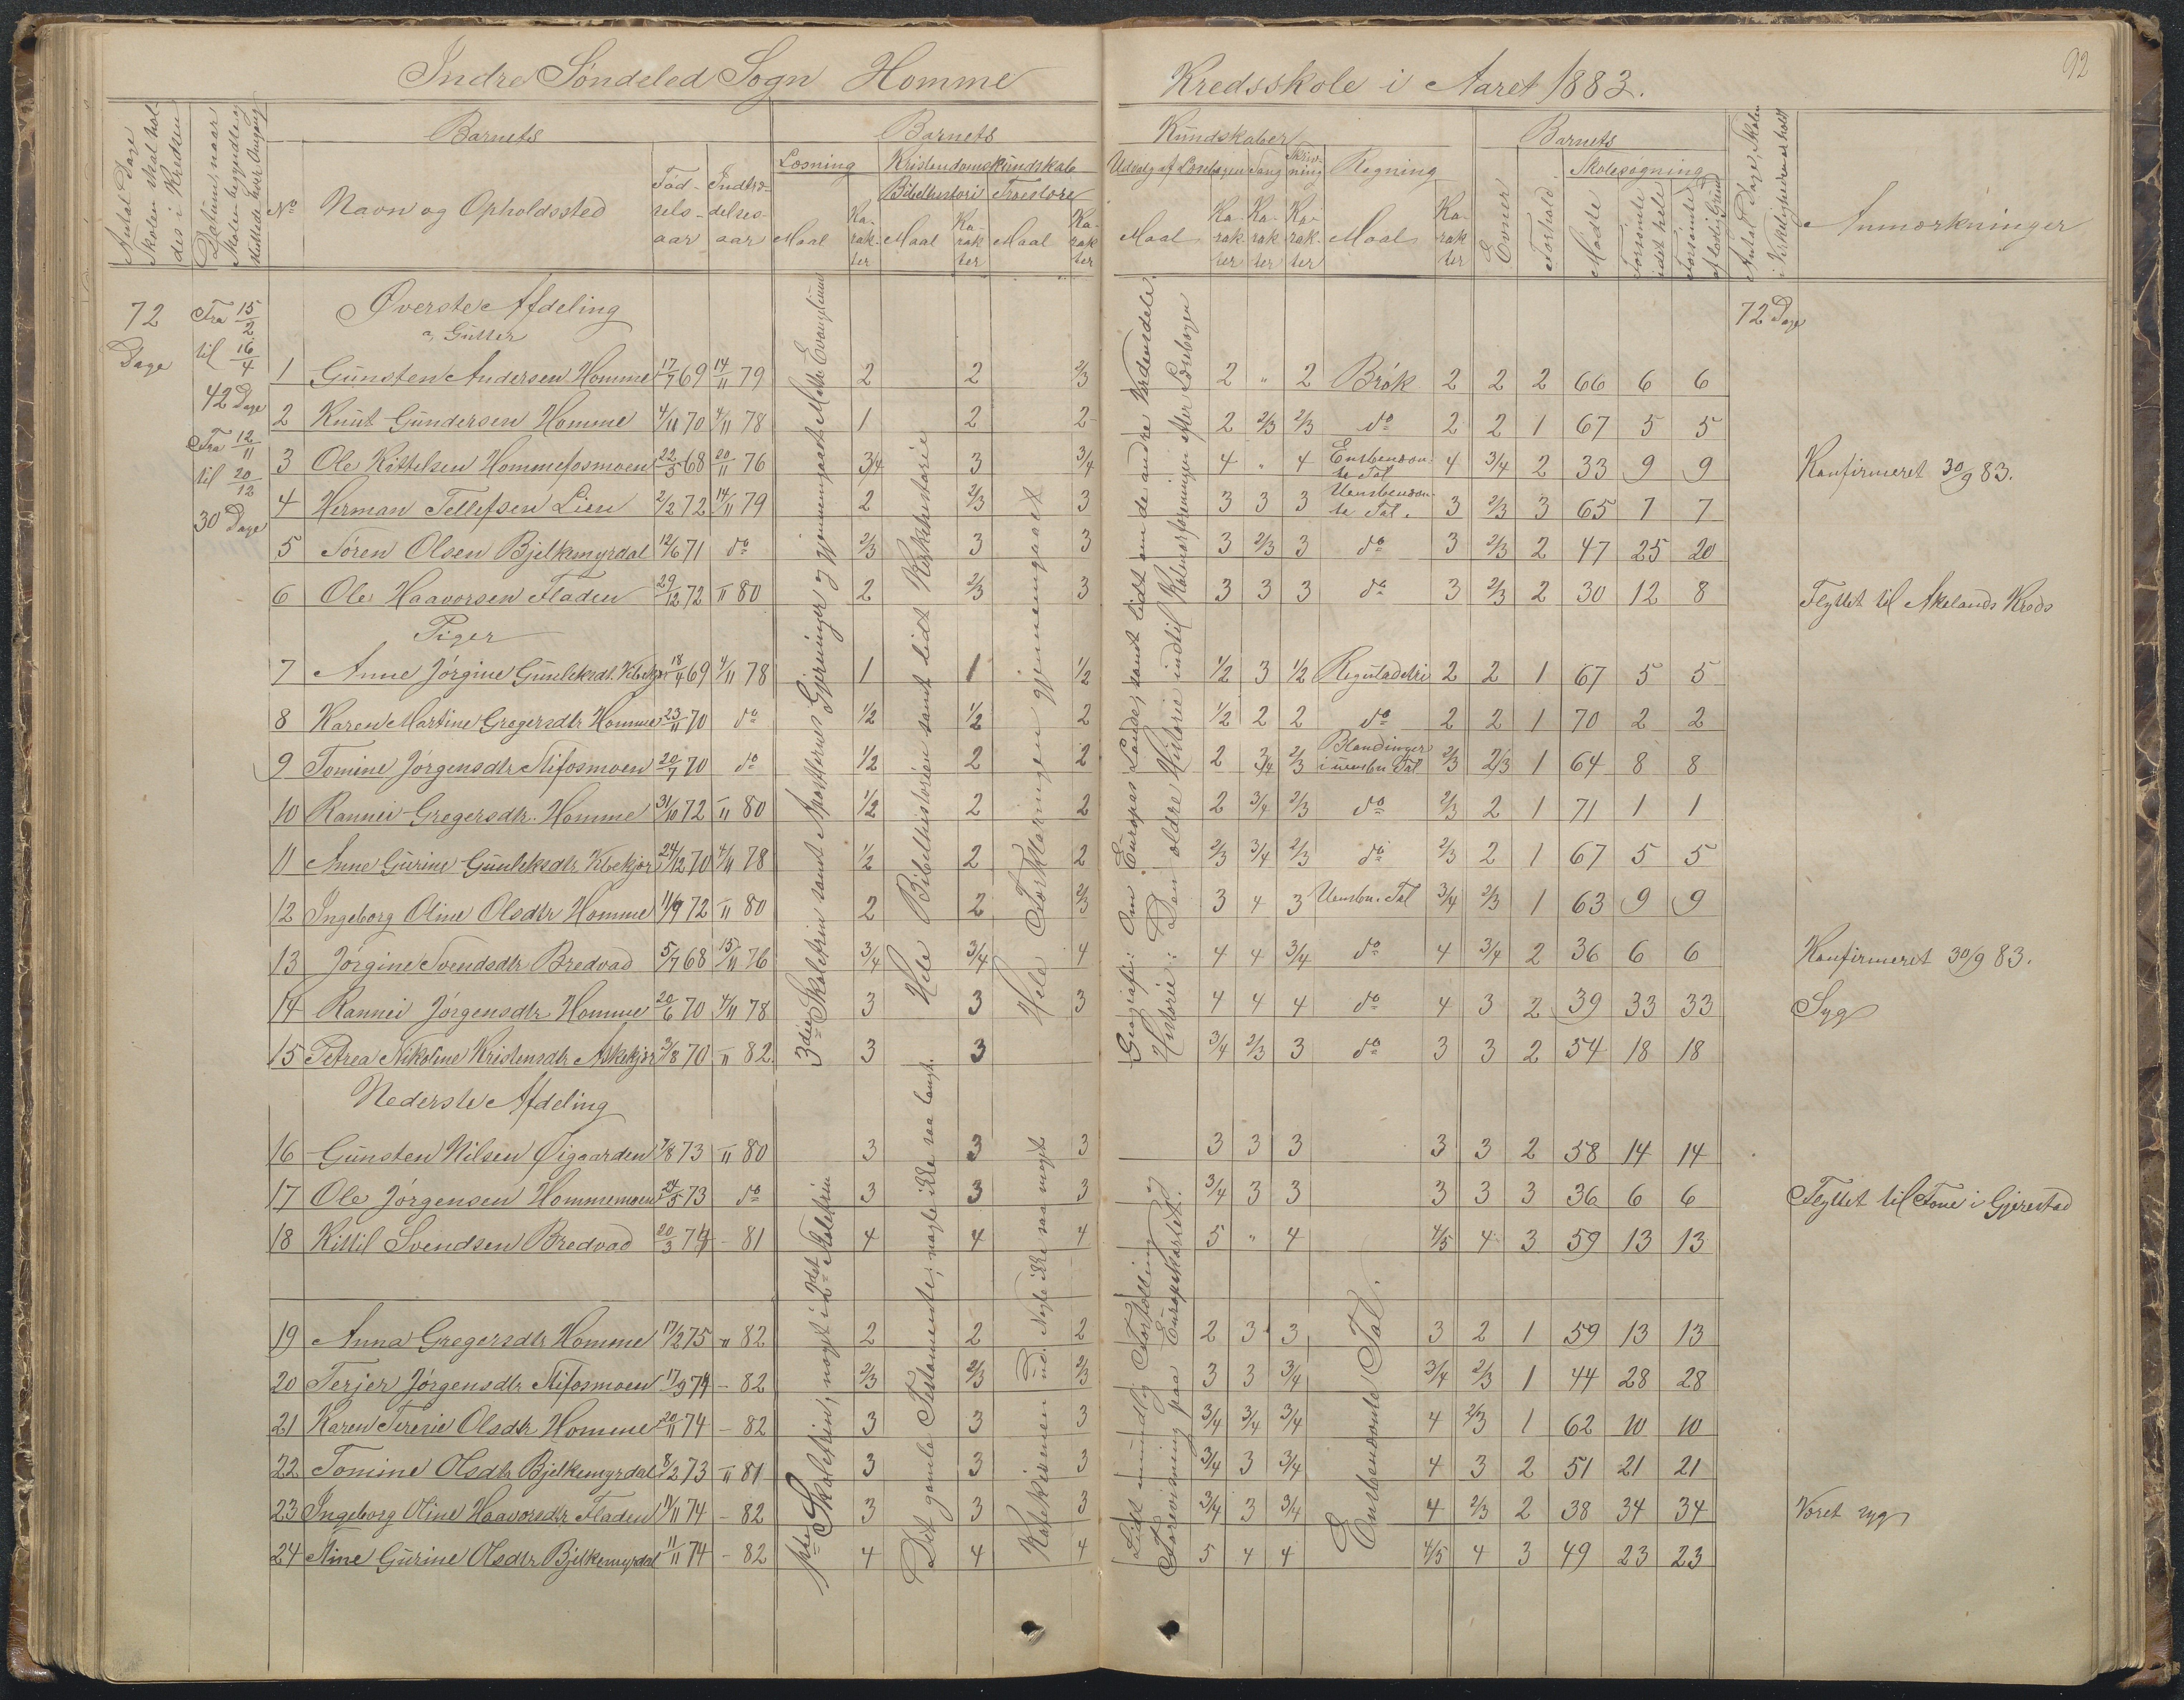 92
Indre Søndeled Sogn Homme Kredsskole i Aaret 1883.
Antal Dage Skolen skal holdes i Kredsen
Datum, naar Skolen begyndte og sluttede hver Omgang
Barnets
No
Navn og Opholdssted
Fødselsaar
Indtrædelsesaar
Barnets Kundskaber
Læsning
Maal
Karakter
Kristendomskundskab
Bibelhistorie
Maal
Karakter
Troeslære
Maal
Karakter
Udvalg af Læsebogen
Maal
Karakter
Sang
Karakter
Skrivning
Karakter
Regning
Maal
Karakter
Barnets
Evner
Forhold
Skolesøgning
Mødte
Forsømte i det hele
Forsømte af lovlig Grund
Antal Dage, Skolen i Virkeligheden er holdt
Anmærkninger
72 Dage
Fra 15/2 til 16/4 42 Dage
Fra 12/11 til 20/12 30 Dage
72 Dage
Øverste Afdeling
a, Gutter
1 Gunsten Andersen Homme 17/7 69 14/11 79 2 2 2/3 2 " 2 Brøk 2 2 2 66 6 6
2 Knut Gundersen Homme 4/11 70 4/11 78 1 2 2 2 2/3 2/3 do 2 2 1 67 5 5
3 Ole Kittelsen Hommefosmoen 22/5 68 20/11 76 3/4 3 3/4 4 " 4 Ensbenævnte Tal 4 3/4 2 33 9 9 Konfirmeret 30/9 83.
4 Herman Tellefsen Lien 2/2 72 14/11 79 2 2/3 3 3 3 3 Uensbenævnte Tal. 3 2/3 3 65 7 7
5 Søren Olsen Bjelkemyrdal 12/6 71 do 2/3 3 3 3 2/3 3 do 3 2/3 2 47 25 20
6 Ole Haavorsen Fladen 29/12 72 " 80 2 2/3 3 3 3 3 do 3 2/3 2 30 12 8 Flyttet til Akelands Kreds
Piger
7 Anne Jørgine Gunleksdt. 18/4 69 4/11 78 1 1 1/2 1/2 3 1/2 Reguladetri 2 2 1 67 5 5
8 Karen Martine Gregersdtr Homme 23/11 70 do 1/2 1/2 2 1/2 2 2 do 2 2 1 70 2 2
9 Tomine Jørgensdtr Stifosmoen 20/7 70 do 1/2 2 2 2 3/4 2/3 Blandinger i uensbn. Tal 2/3 2/3 1 64 8 8
10 Rannei Gregersdtr. Homme 31/10 72 " 80 1/2 2 2 2 3/4 2/3 do 2/3 2 1 71 1 1
11 Anne Gurine Gunleksdtr 24/12 70 4/11 78 1/2 2 2 2/3 3/4 2/3 do 2/3 2 1 67 5 5
12 Ingeborg Oline Olsdtr Homme 11/9 72 " 80 2 2 2/3 3 4 3 Uensbn. Tal 3/4 2/3 1 63 9 9
13 Jørgine Svendsdtr Bredvad 5/7 68 15/11 76 3/4 3/4 4 4 4 3/4 do 4 3/4 2 36 6 6 Konfirmeret 30/9 83.
14 Rannei Jørgensdtr Homme 20/6 70 4/11 78 3 3 3 4 4 4 do 4 3 2 39 33 33 Syg
15 Petrea Nikoline Kristensdtr Askekjær 3/8 70 " 82 3 3 3/4 2/3 3 do 3 3 2 54 18 18
3die Skoletrin samt Apostlernes Gjerninger og gjennemgaaet Mathæi Evangelium
Hele Bibelhistorien samt lidt Kirkehistorie
Hele Forklaringen gjennemgaaet
Geografi: Om Europas Lande, samt lidt om de andre Verdensdele.
Historie: Den ældre Historie indtil Kalmarforeningen efter Læsebogen
Nederste Afdeling
16 Gunsten Nilsen Øigaarden 7/8 73 " 80 3 3 3 3 3 3 3 3 2 58 14 14
17 Ole Jørgensen Hommemoen 24/5 73 do 3 3 3 3/4 3 3 3 3 3 36 6 6 Flyttet til Tone i Gjerestad
18 Kittil Svendsen Bredvad 20/3 74 - 81 4 4 4 5 " 4 4/5 4 3 59 13 13
19 Anna Gregersdtr Homme 17/2 75 " 82 2 2 2 2 3 3 3 2 1 59 13 13
20 Terjer Jørgensdtr Stifosmoen 17/9 74 - 82 2/3 2/3 2/3 3 3 3/4 3/4 2/3 1 44 28 28
21 Karen Teresie Olsdtr Homme 20/11 74 - 82 3 3 3 3/4 3/4 3/4 4 2/3 1 62 10 10
22 Tomine Olsdtr Bjelkemyrdal 8/2 73 " 81 3 3 3 3/4 3 3/4 4 3 2 51 21 21
23 Ingeborg Oline Haavorsdtr Fladen 11/11 74 - 82 3 3 3 3/4 3 3/4 4 2/3 2 38 34 34 Været syg
24 Nine Gurine Olsdtr Bjelkemyrdal 11/11 74 - 82 4 4 4 5 4 4 4/5 4 3 49 23 23
1ste Skoletrin, noget i 2det Skoletrin
Det gamle Testamente; nogle ikke saa langt.
Katekismen ud. Nogle ikke saa meget
Lidt mundtlig Fortælling og Forevisning paa Europakartet.
Ensbenævnte Tal.